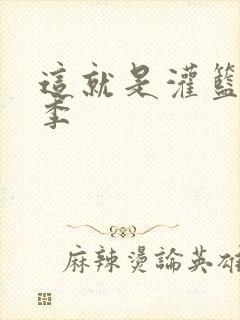 這就是灌籃
季
麻辣燙論英雄